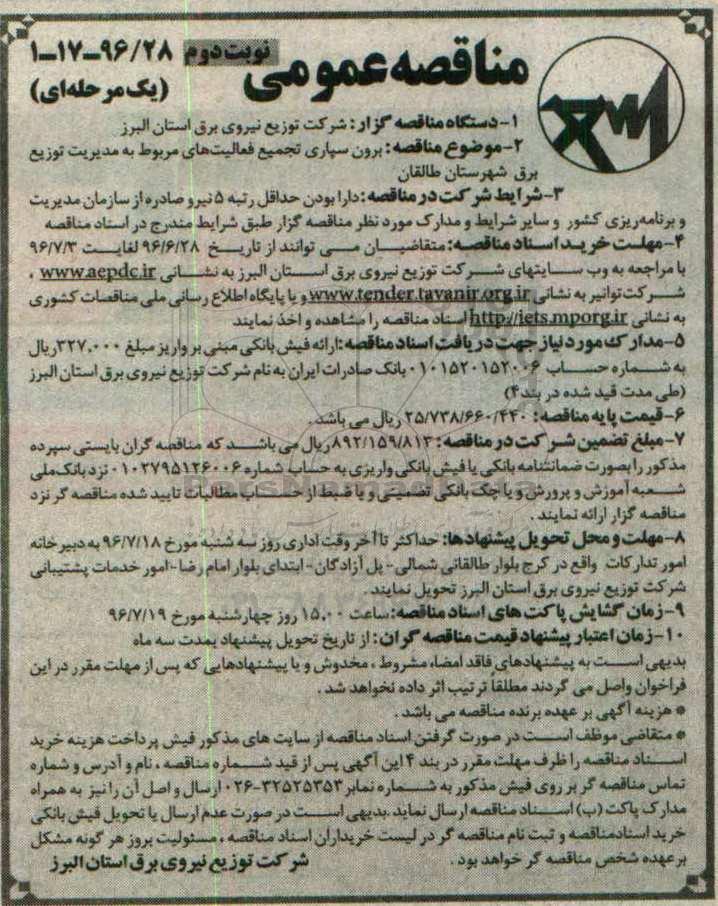 مناقصه عمومی نوبت دوم ۱-۱۷-۹۶/۲۸
(یک مرحله‌ای)
۱-دستگاه مناقصه گزار: شرکت توزیع نیروی برق استان البرز
۲-موضوع مناقصه: برون سپاری تجمیع فعالیت‌های مربوط به مدیریت توزیع
برق شهرستان طالقان
۳-شرایط شرکت در مناقصه: دارا بودن حداقل رتبه ۵ نیرو صادره از سازمان مدیریت
و برنامه‌ریزی کشور و سایر شرایط و مدارک مورد نظر مناقصه گزار طبق شرایط مندرج در اسناد مناقصه
۴-مهلت خرید اسناد مناقصه: متقاضیان می توانند از تاریخ ۹۶/۶/۲۸ لغایت ۹۶/۷/۳
با مراجعه به وب سایتهای شرکت توزیع نیروی برق استان البرز به نشانی www.aepdc.ir ،
شرکت توانیر به نشانی www.tender.tavanir.org.ir و یا پایگاه اطلاع رسانی ملی مناقصات کشوری
به نشانی http://iets.mporg.ir اسناد مناقصه را مشاهده و اخذ نمایند
۵-مدارک مورد نیاز جهت دریافت اسناد مناقصه: ارائه فیش بانکی مبنی بر واریز مبلغ ۳۲۷,۰۰۰ ریال
به شماره حساب ۰۱۰۱۵۲۰۱۵۲۰۰۶ بانک صادرات ایران به نام شرکت توزیع نیروی برق استان البرز
(طی مدت قید شده در بند ۴)
۶-قیمت پایه مناقصه: ۲۵/۷۳۸/۶۶۰/۴۴۰ ریال می باشد .
۷-مبلغ تضمین شرکت در مناقصه: ۸۹۲/۱۵۹/۸۱۳ ریال می باشد که مناقصه گران بایستی سپرده
مذکور را بصورت ضمانتنامه بانکی یا فیش بانکی واریزی به حساب شماره ۰۱۰۲۷۹۵۱۲۶۰۰۶ نزد بانک ملی
شعبه آموزش و پرورش و یا چک بانکی تضمینی و یا ضبط از حساب مطالبات تایید شده مناقصه گر نزد
مناقصه گزار ارائه نمایند .
۸-مهلت و محل تحویل پیشنهادها: حداکثر تا آخر وقت اداری روز سه شنبه مورخ ۹۶/۷/۱۸ به دبیرخانه
امور تدارکات واقع در کرج بلوار طالقانی شمالی- پل آزادگان- ابتدای بلوار امام رضا- امور خدمات پشتیبانی
شرکت توزیع نیروی برق استان البرز تحویل نمایند .
۹-زمان گشایش پاکت های اسناد مناقصه: ساعت ۱۵,۰۰ روز چهارشنبه مورخ ۹۶/۷/۱۹
۱۰-زمان اعتبار پیشنهاد قیمت مناقصه گران: از تاریخ تحویل پیشنهاد بمدت سه ماه
بدیهی است به پیشنهادهای فاقد امضاء، مشروط ، مخدوش و یا پیشنهادهایی که پس از مهلت مقرر در این
فراخوان واصل می گردند مطلقاً ترتیب اثر داده نخواهد شد .
* هزینه آگهی بر عهده برنده مناقصه می باشد .
* متقاضی موظف است در صورت گرفتن اسناد مناقصه از سایت های مذکور فیش پرداخت هزینه خرید
اسناد مناقصه را ظرف مهلت مقرر در بند ۴ این آگهی پس از قید شماره مناقصه ، نام و آدرس و شماره
تماس مناقصه گر بر روی فیش مذکور به شماره نمابر ۳۲۵۲۵۳۵۳-۰۲۶ ارسال و اصل آن را نیز به همراه
مدارک پاکت (ب) اسناد مناقصه ارسال نماید .بدیهی است در صورت عدم ارسال یا تحویل فیش بانکی
خرید اسناد مناقصه و ثبت نام مناقصه گر در لیست خریداران اسناد مناقصه ، مسئولیت بروز هر گونه مشکل
بر عهده شخص مناقصه گر خواهد بود .
شرکت توزیع نیروی برق استان البرز